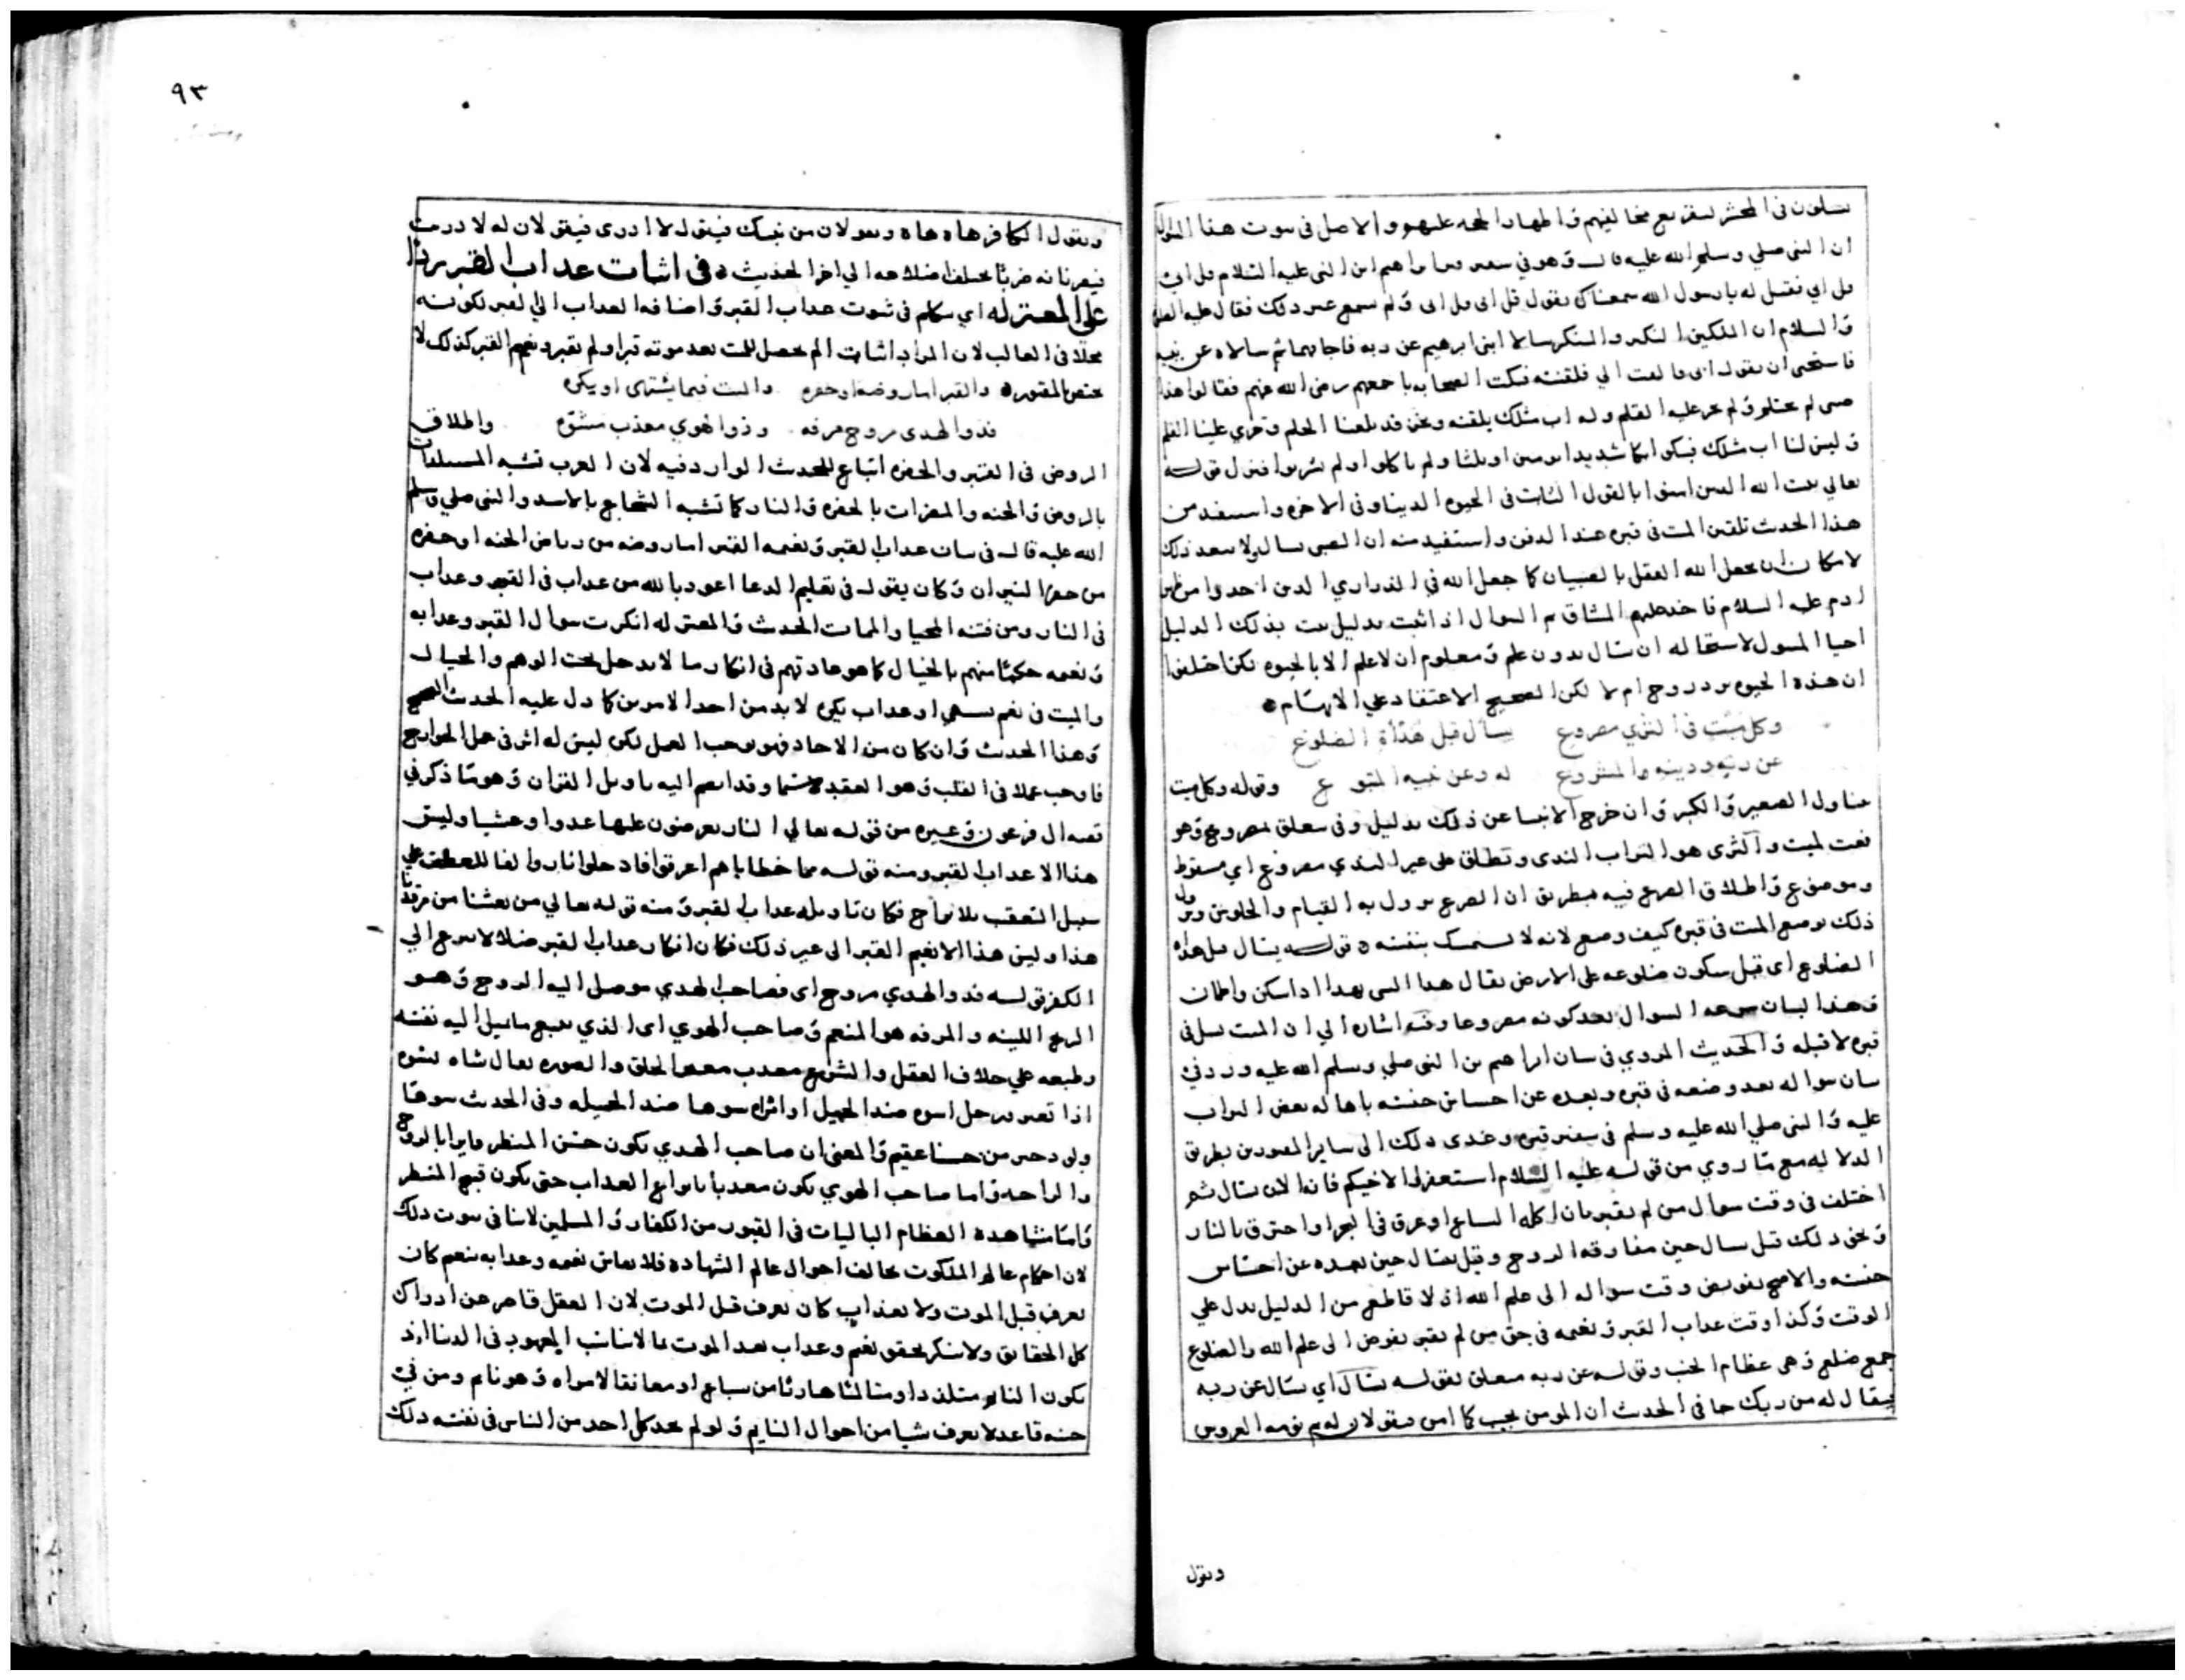 يسلون في المحشر لتقريع مخالفيهم واظهار الحجه عليهم والاصل في ثبوت هذا السوال
ان النبي صلي وسلم الله عليه قال وهو في ابراهيم ابن النبي عليه السلام قل ابي
قل ابي فقيل له يا رسول الله سمعناك تقول قل ابي قل ابي ولم نسمع غير ذلك فقال عليه الصلوة
والسلام ان الملكين النكير والمنكر سالا ابني ابرهيم عن ربه فاجابهما ثم سالاه عن نبيه
فاستحيى ان يقول ابي فالتفت الي فلقنته فبكت الصحابه باجمعهم رضي الله عنهم فقالوا هذا
صبي لم يحتلم ولم يجر عليه القلم وله اب مثلك يلقنه ونحن قد بلغنا الحلم وجري علينا القلم
وليس لنا اب مثلك فبكوا بكا شديدا يومين او ثلثا ولم ياكلوا ولم يشربوا فنزل قوله
تعالي يثبت الله الذين امنوا بالقول الثابت في الحيوه الدنيا وفي الاخره واستفيد من
هذا الحديث تلقين الميت في قبره عند الدفن واستفيد منه ان الصبي يسال ولا يبعد ذلك
لامكان ان يجعل الله العقل بالصبيان كما جعل الله في الذراري الذين اخذوا من ظهر
ادم عليه السلام فاخذ عليهم الميثاق ثم السوال اذا ثبت بدليل يثبت بذلك الدليل
احيا المسول لاستحاله ان يسال بدون علم ومعلوم ان لا علم الا بالحيوه لكن اختلفوا
ان هذه الحيوه برد روح ام لا لكن الصحيح الاعتقاد علي الابهام
وكل ميت في الثري مصروع يسأل قبل هدأة الضلوع
عن ربه ودينه والمشروع له وعن نبيه المتبوع وقوله وكل ميت
يتناول الصغير والكبير وان خرج الانبيا عن ذلك بدليل وفي يتعلق بمصروع وهو
نعت لميت والثرى هو التراب الندى وتطلق على غير الندي مصروع اي مسقوط
وموضوع واطلاق الصرع فيه بطريق ان الصرع يزول به القيام والجلوس ويزول
ذلك بوضع الميت في قبره كيف وضع لانه لا يستمسك بنفسه قوله يسال قبل هدأة
الضلوع اى قبل سكون ضلوعه على الارض يقال هدا الشي يهدا اذا سكن واطمان
وهذا لبيان سرعه السوال بعد كونه مصروعا وفيه اشاره الي ان الميت يسل في
قبره لا قبله والحديث المروي في شان ابراهيم بن النبي صلي وسلم الله عليه ورد في
بيان سواله بعد وضعه في قبره وبعده عن احساس جثته باهاله بعض التراب
عليه والنبي صلي الله عليه وسلم في سفير قبره وعدى ذلك الى ساير المقبورين بطريق
الدلاله مع ما روي من قوله عليه السلام استغفروا لاخيكم فانه الان يسال ثم
اختلف في وقت سوال من لم يقبر بان اكله السباع او غرق في البحر او احترق بالنار
ونحو ذلك قيل يسال حين مفارقه الروح وقيل يسال حين بعده عن احساس
جثته والاصح تفويض وقت سواله الى علم الله اذ لا قاطع من الدليل يدل علي
الوقت وكذا وقت عذاب القبر ونعيمه في حق من لم يقبر يفوض الى علم الله والضلوع
جمع ضلع وهي عظام الجنب وقوله عن ربه متعلق بقوله يسأل اي يسال عن ربه
فيقال له من ربك جا في الحديث ان المومن يجيب كما امن فيقولان له نم نومه العروس
ويقول
٩٣
ويقول الكافر هاه هاه ويقولان من نبيك فيقول لا ادرى فيقولان له لا دريت
فيضربانه ضربا يختلف اضلاعه الي اخر الحديث في اثبات عذاب القبر ردا
على المعتزله اي نتكلم في ثبوت عذاب القبر واضافه العذاب الي القبر لكونه
محلا في الغالب لان المراد اثبات الم يحصل للميت بعد موته قبر او لم يقبر ونعيم القبر كذلك لا
يختص بالمقبور والقبر اما روضة او حفره والميت فيما يشتهى او يكره
فذو الهدى مروح مرفه وذو الهوي معذب مشوه واطلاق
الروض في القبر والحفره اتباع للحديث الوارد فيه لان العرب تشبه المستلذات
بالروض والجنه والمضرات بالحفره والنار كما تشبه الشجاع بالاسد والنبي صلي وسلم
الله عليه قال في بيان عذاب القبر ونعيمه القبر اما روضه من رياض الجنه او حفره
من حفر النيران وكان يقول في تعليم الدعا اعوذ بالله من عذاب في القبر وعذاب
في النار ومن فتنه المحيا والممات الحديث والمعتزله انكرت سوال القبر وعذابه
ونعيمه حكما منهم بالخيال كما هو عادتهم في انكار ما لا يدخل تحت الوهم والخيال
والميت في نعيم يشتهي او عذاب يكره لا بد من احد الامرين كما دل عليه الحديث الصحيح
وهذا الحديث وان كان من الاحاد فهو يوجب العمل لكن ليس له اثر في عمل الجوارح
فاوجب عملا في القلب وهو العقيد لا سيما وقد انضم اليه تاويل القران وهو ما ذكر في
قصه ال فرعون وغيره من قوله تعالي النار يعرضون عليها غدوا وعشيا وليس
هذا الا عذاب القبر ومنه قوله مما خطاياهم اغرقوا فادخلوا نارا والفا للعطف علي
سبيل التعقب بلا تراخ فكان تاويله عذاب القبر ومنه قوله تعالي من بعثنا من مرقدنا
هذا وليس هذا الا نعيم القبر الى غير ذلك فكان انكار عذاب القبر ضلالا يسرع الي
الكفر قوله فذو الهدي مروح اى فصاحب الهدي موصل اليه الروح وهو
الريح اللينه والمرفه هو المنعم وصاحب الهوي اى الذي يتبع ما تميل اليه نفسه
وطبعه علي خلاف العقل والشرع معذب مقبح الخلق والصوره يقال شاه يشوه
اذا تصور رجل اسوه ضد الجميل او امراه سوها ضد الجميله وفي الحديث سوها
ولود خير من حسنا عقيم والمعنى ان صاحب الهدي يكون حسن المنظر فايزا بالروح
والراحه واما صاحب الهوي يكون معذبا بانواع العذاب حتى يكون قبيح المنظر
واما مشاهدة العظام الباليات في القبور من الكفار والمسلمين لا ينافي ثبوت ذلك
لان احكام عالم الملكوت يخالف احوال عالم الشهاده فلا يقاس نعيمه وعذابه بنعيم كان
يعرف قبل الموت ولا بعذاب كان يعرف قبل الموت لان العقل قاصر عن ادراك
كل الحقايق ولا ينكر تحقق نعيم وعذاب بعد الموت بما لا يناسب المعهود في الدنيا اذ
يكون النايم متلذذا ومتالما هاربا من سباع او معانقا لامراه وهو نايم ومن في
جنبه قاعد لا يعرف شيا من احوال النايم ولو لم يجد كل احد من الناس في نفسه ذلك